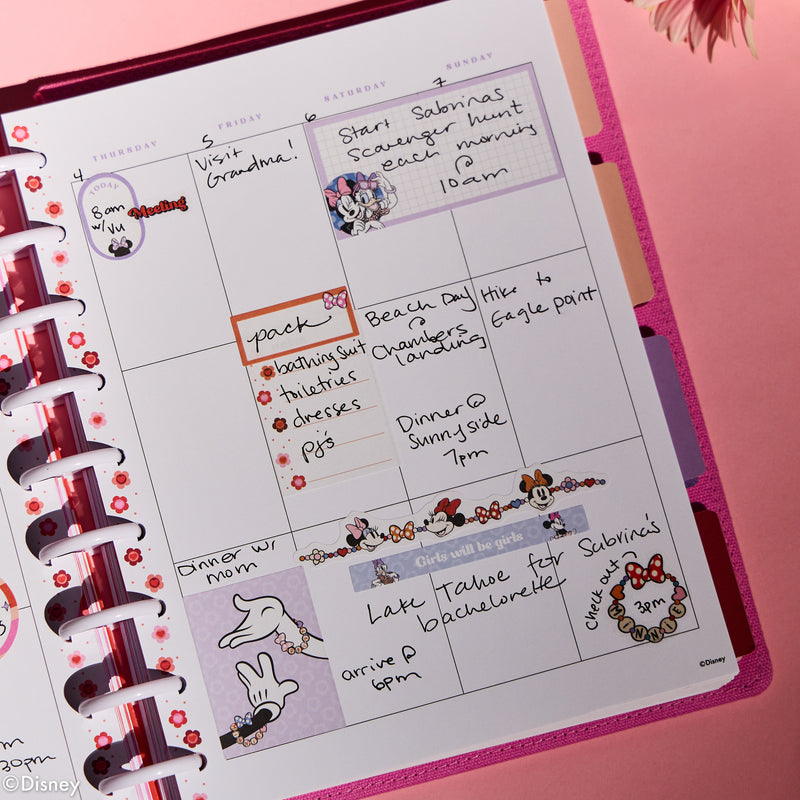 THURSDAY
FRIDAY
SATURDAY
SUNDAY
4
5
6
7
TODAY
8am
w/ Vu
Meeting
Visit
Grandma!
Start Sabrinas
Scavenger hunt
each morning
@
10am
pack
bathing suit
toiletries
dresses
pj's
Beach Day
@
Chambers
landing
Dinner @
Sunnyside
7pm
Hike to
Eagle point
Dinner w/
mom
Girls will be girls
Lake Tahoe for Sabrina's
bachelorette
arrive @
6pm
check out
3pm
MINNIE
©Disney
30pm
©Disney